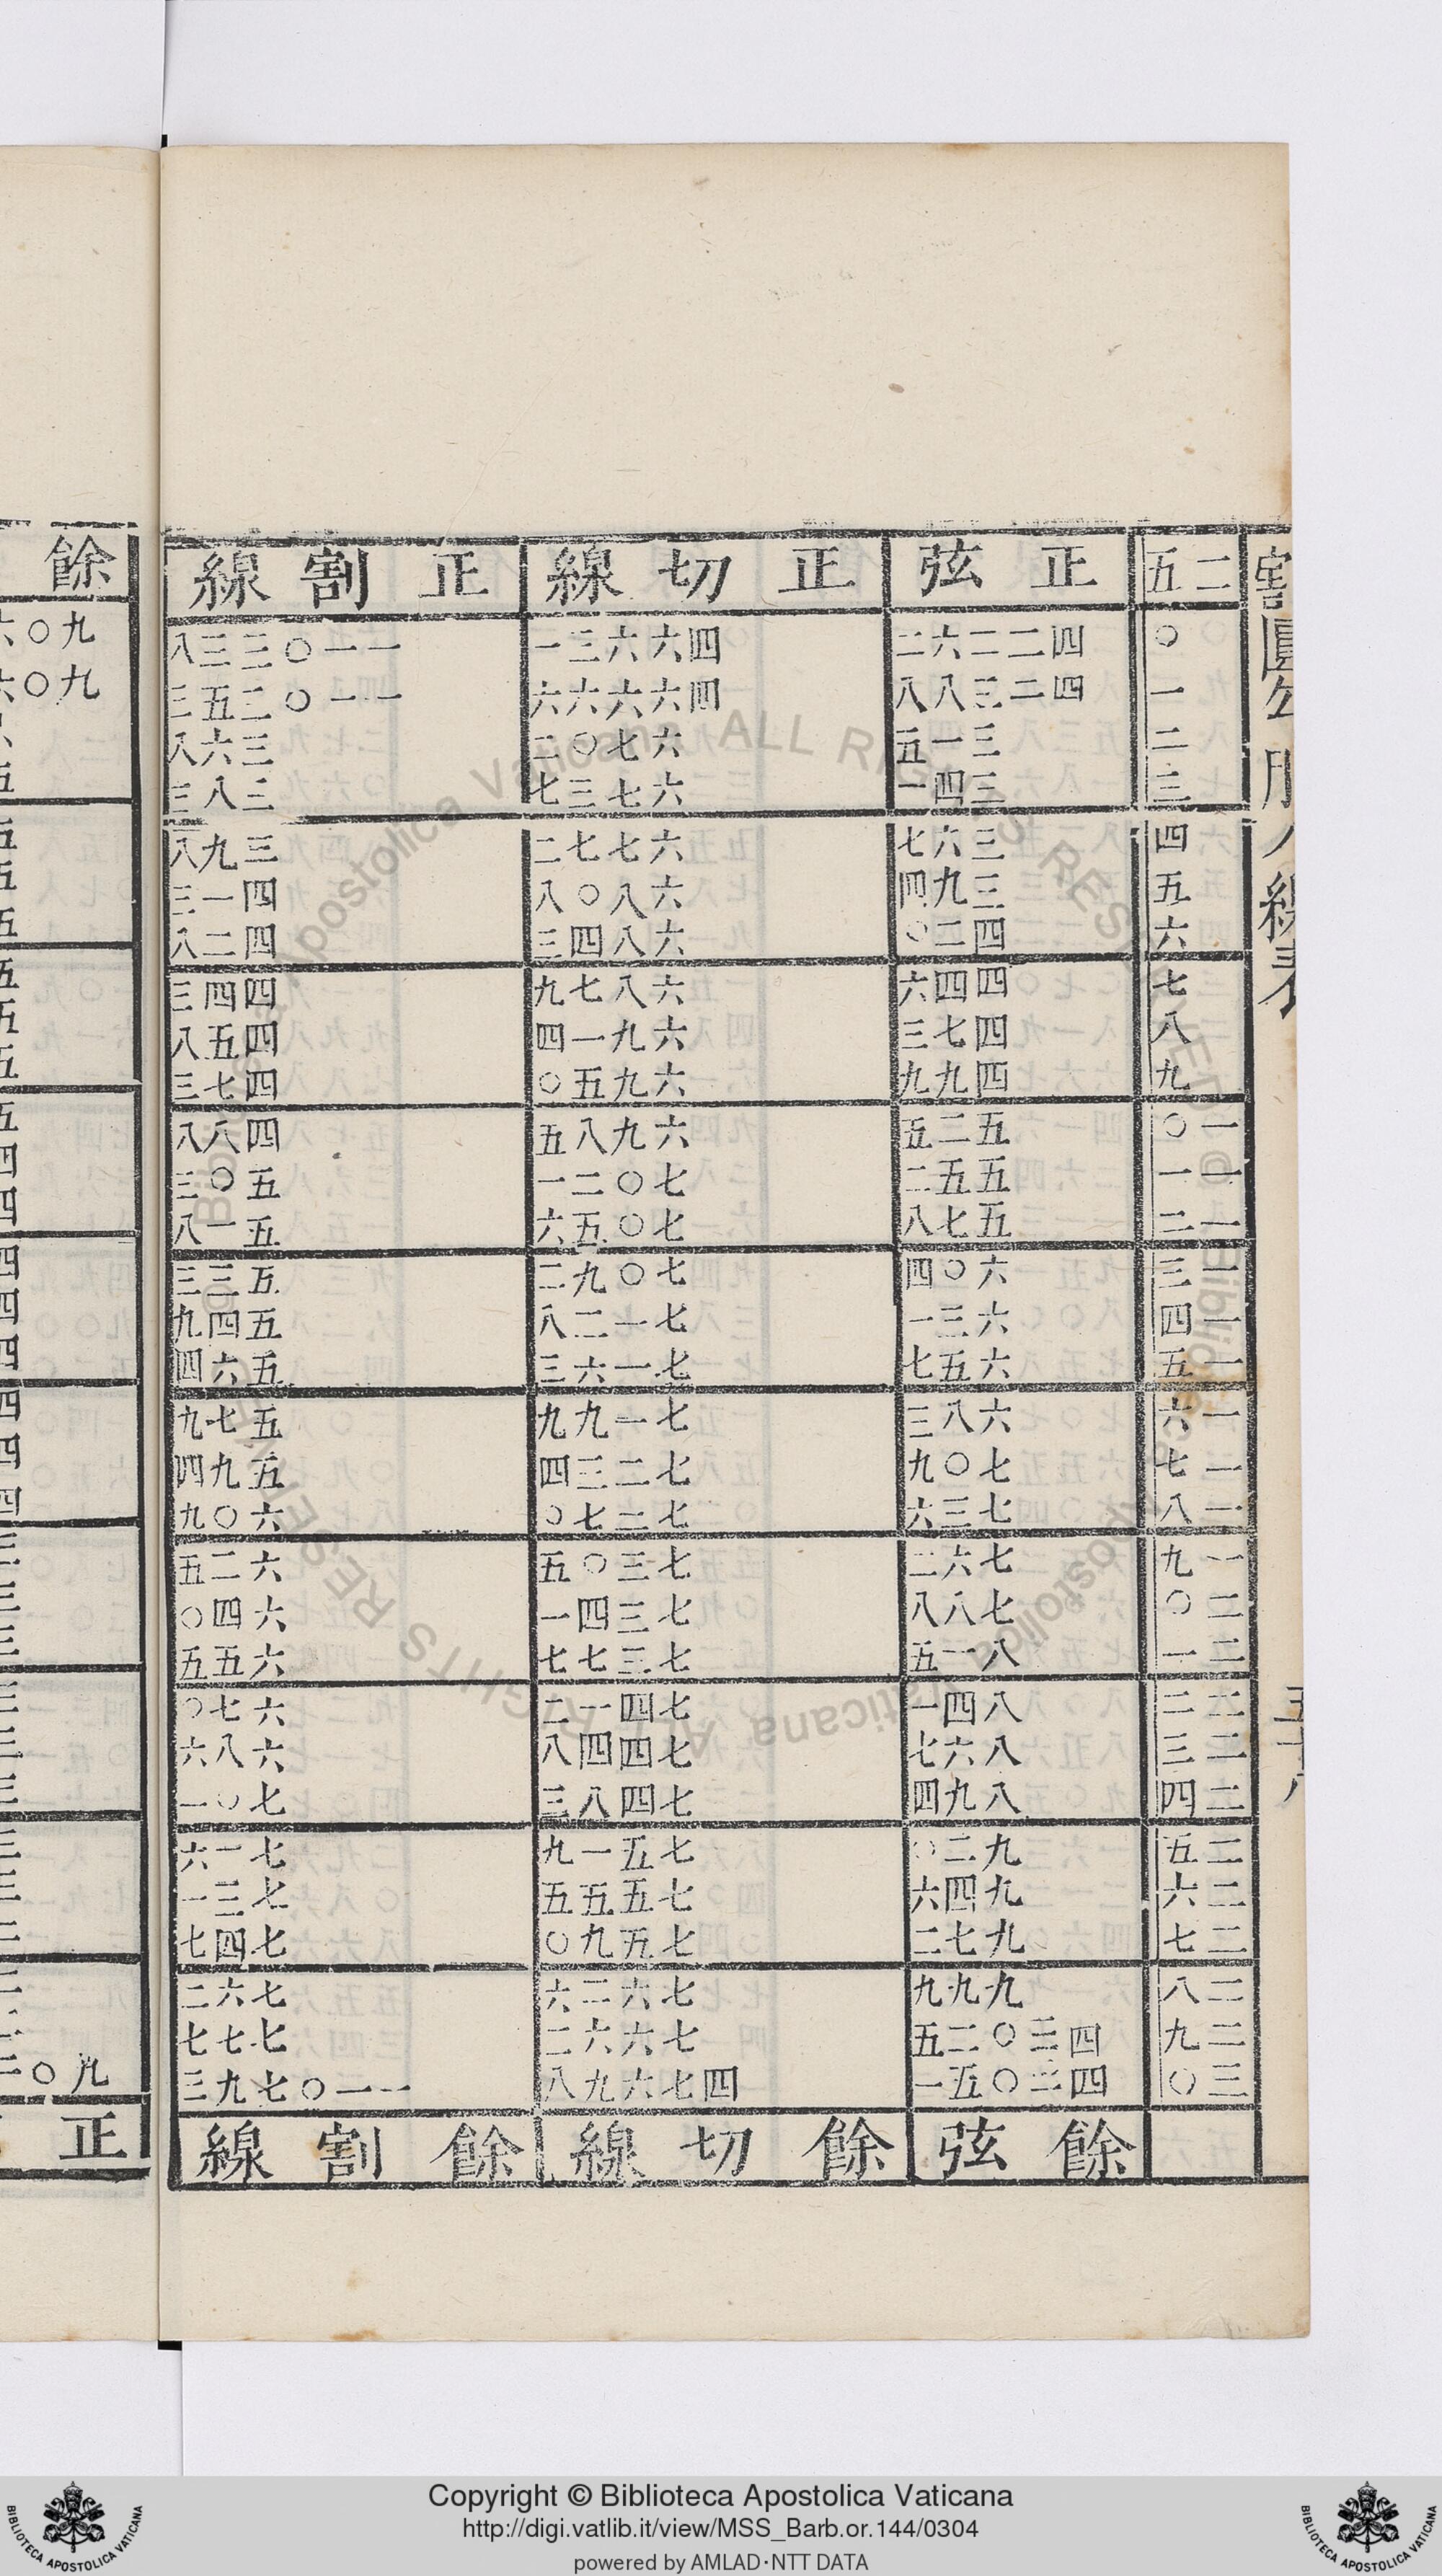 割圓勾股八線表
五十八
二五 正弦 正切線 正割線
○ 四二二六二 四六六三一 一一○三三八
一 四二三八八 四六六六六 一一○三五三
二 三一五 六七○二 三六八
三 三四一 六七三七 三八三
四 三六七 六七七二 三九八
五 三九四 六八○八 四一三
六 四二○ 六八四三 四二八
七 四四六 六八七九 四四三
八 四七三 六九一四 四五八
九 四九九 六九五○ 四七三
一○ 五二五 六九八五 四八八
一一 五五二 七○二一 五○三
一二 五七八 七○五六 五一八
一三 六○四 七○九二 五三三
一四 六三一 七一二八 五四九
一五 六五七 七一六三 五六四
一六 六八三 七一九九 五七九
一七 七○九 七二三四 五九四
一八 七三六 七二七○ 六○九
一九 七六二 七三○五 六二五
二○ 七八八 七三四一 六四○
二一 八一五 七三七七 六五五
二二 八四一 七四一二 六七○
二三 八六七 七四四八 六八六
二四 八九四 七四八三 七○一
二五 九二○ 七五一九 七一六
二六 九四六 七五五五 七三一
二七 九七二 七五九○ 七四七
二八 九九九 七六二六 七六二
二九 四三○二五 七六六二 七七七
三○ 四三○五一 四七六九八 一一○七九三
餘弦 餘切線 餘割線
餘
正
Copyright © Biblioteca Apostolica Vaticana
http://digi.vatlib.it/view/MSS_Barb.or.144/0304
powered by AMLAD･NTT DATA